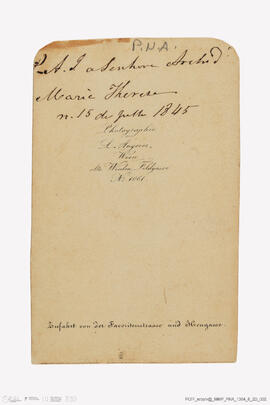 P.N.A.
A. I. a Senhora Archid.
Marie Therese
n. 15 de Julho 1845
Photographie
L. Angerer,
Wien
alte Wieden, Feldgasse
No. 1061.
Zufahrt von der Favoritenstrasse und Heugasse.